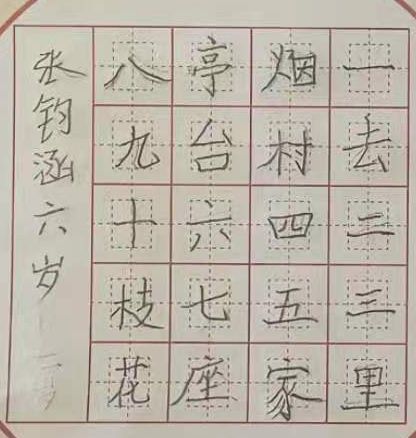 一去二三里
烟村四五家
亭台六七座
八九十枝花
张钧涵六岁